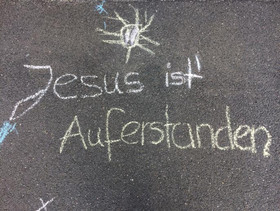 Jesus ist
Auferstanden